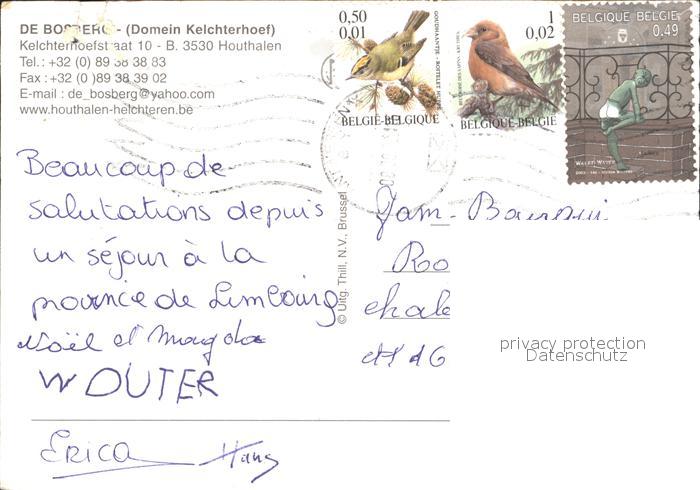 DE BOSBERG - (Domein Kelchterhoef)
Kelchterhoefstraat 10 - B. 3530 Houthalen
Tel.: +32 (0) 89 38 38 83
Fax : +32 (0 )89 38 39 02
E-mail : de_bosberg@yahoo.com
www.houthalen-helchteren.be
0,50
0,01
GOUDHAANTJE - ROITELET HUPPÉ
BELGIË-BELGIQUE
1
0,02
BELGIQUE-BELGIË
BELGIQUE BELGIË
0,49
Beaucoup de
salutations depuis
un séjour à la
province de Limbourg
Noël et Magda
WOUTER
Erica Hans
© Uitg. Thill, N.V., Brussel
Fam-
Ro
chale
privacy protection
Datenschutz